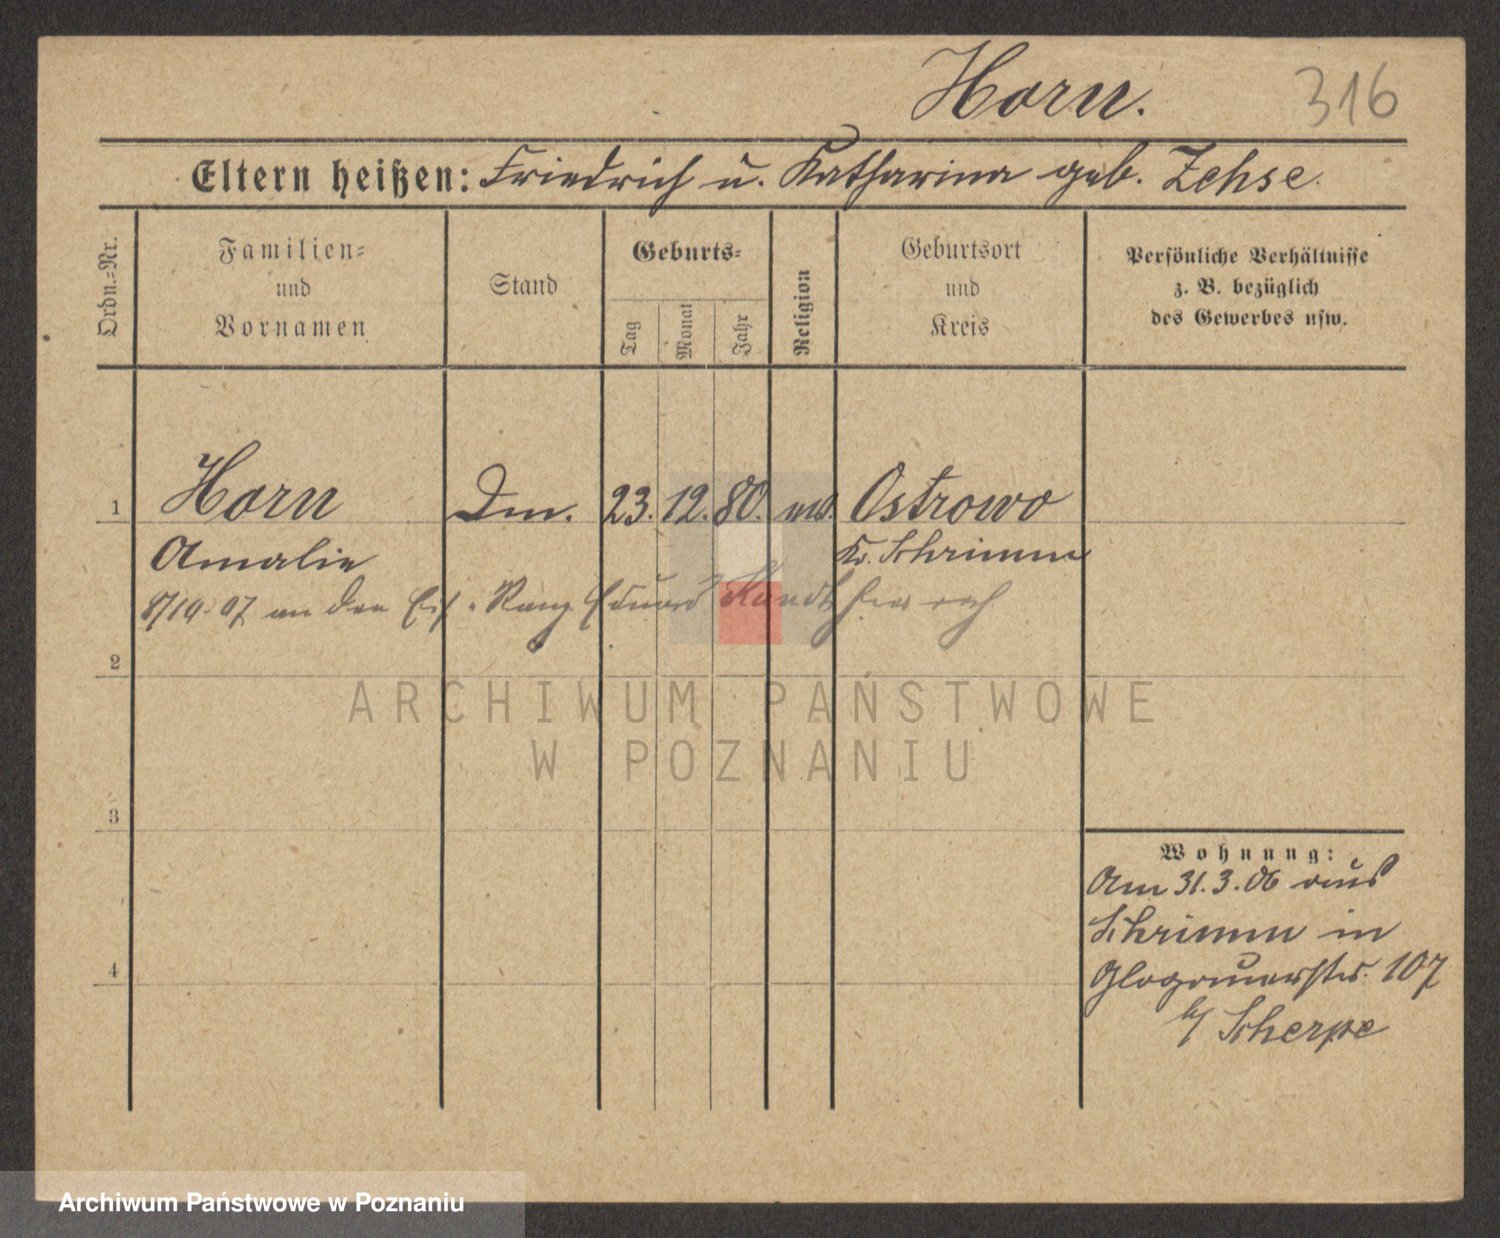 Horn.
316
Eltern heißen: Friedrich u. Katharina geb. Zehse.
Ordn.=Nr.
Familien=
und
Vornamen
Stand
Geburts=
Tag
Monat
Jahr
Religion
Geburtsort
und
Kreis
Persönliche Verhältnisse
z. B. bezüglich
des Gewerbes usw.
1
Horn
Dm.
23. 12. 80.
Ostrowo
Amalie
Kr. Schrimm
8/10. 07 an den Eduard
2
ARCHIWUM PAŃSTWOWE
W POZNANIU
3
Wohnung:
Am 31.3.06 aus
Schrimm in
4
Glogauerstr. 107
b/ Scherpe
Archiwum Państwowe w Poznaniu